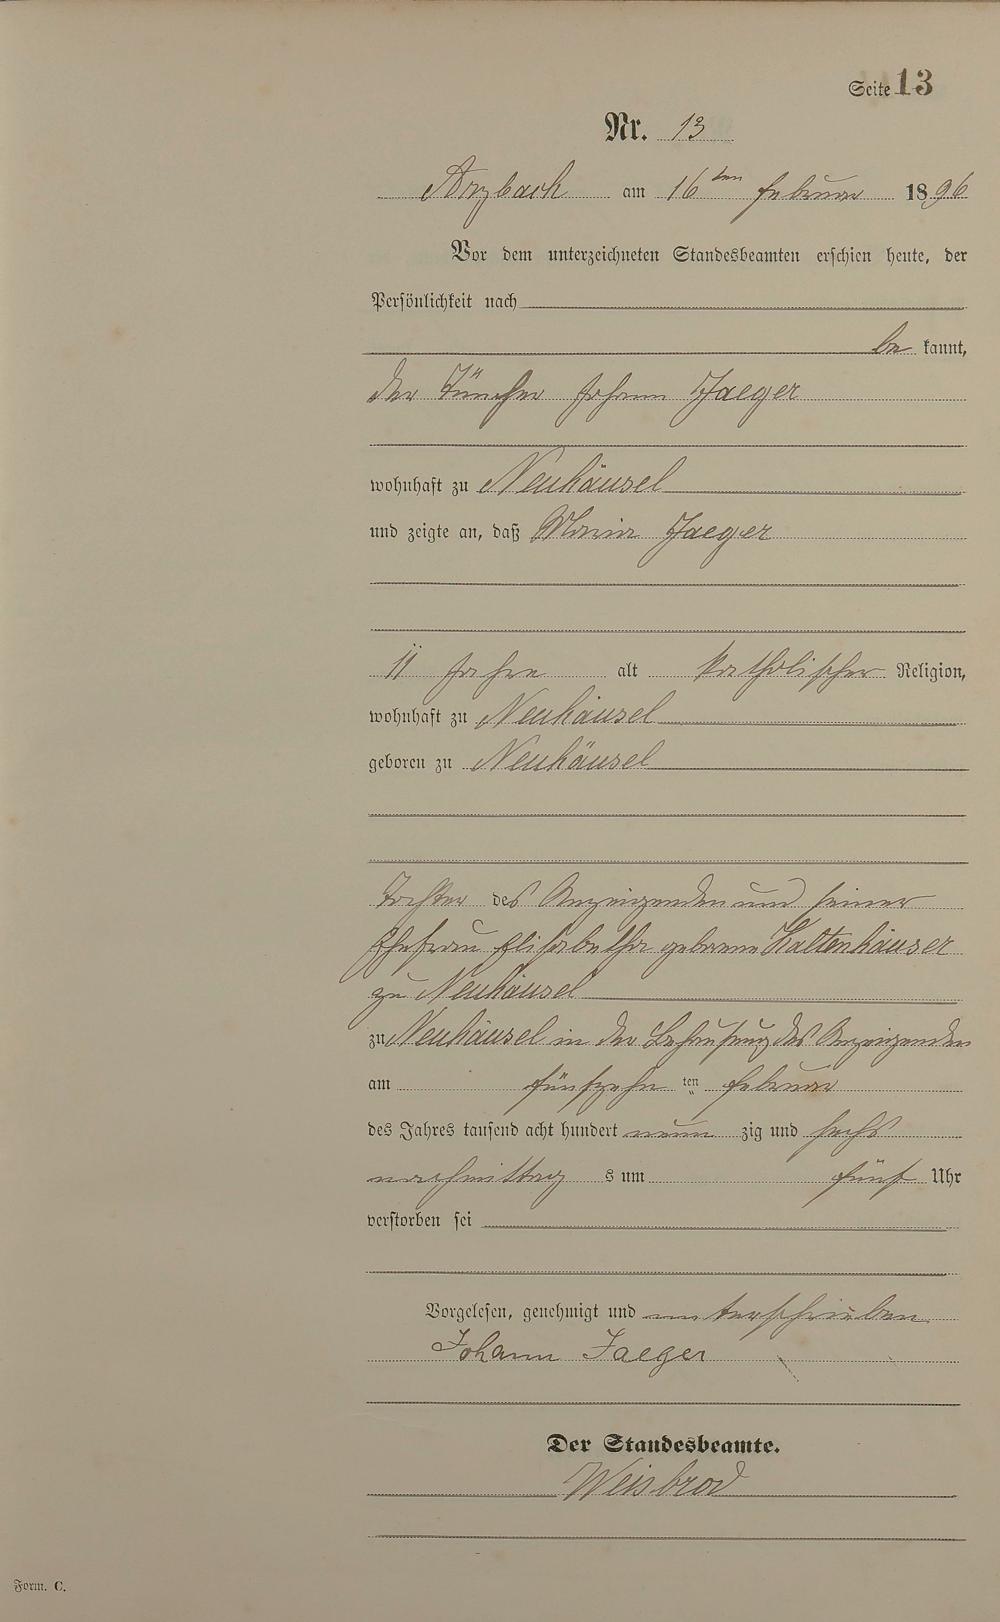 Seite 13
Nr. 13
Arzbach am 16ten Februar 1896
Vor dem unterzeichneten Standesbeamten erschien heute, der
Persönlichkeit nach
be kannt,
der Tüncher Johann Jaeger
wohnhaft zu Neuhäusel
und zeigte an, daß Maria Jaeger
11 Jahre alt katholischer Religion,
wohnhaft zu Neuhäusel
geboren zu Neuhäusel
Tochter des Anzeigenden und seiner
Ehefrau Elisabetha geborene Kaltenhäuser
zu Neuhäusel
zu Neuhäusel in der Behausung des Anzeigenden
am fünfzehn ten Februar
des Jahres tausend acht hundert neun zig und sechs
nachmittag s um fünf Uhr
verstorben sei
Vorgelesen, genehmigt und unterschrieben
Johann Jaeger
Der Standesbeamte.
Weisbrod
Form. C.